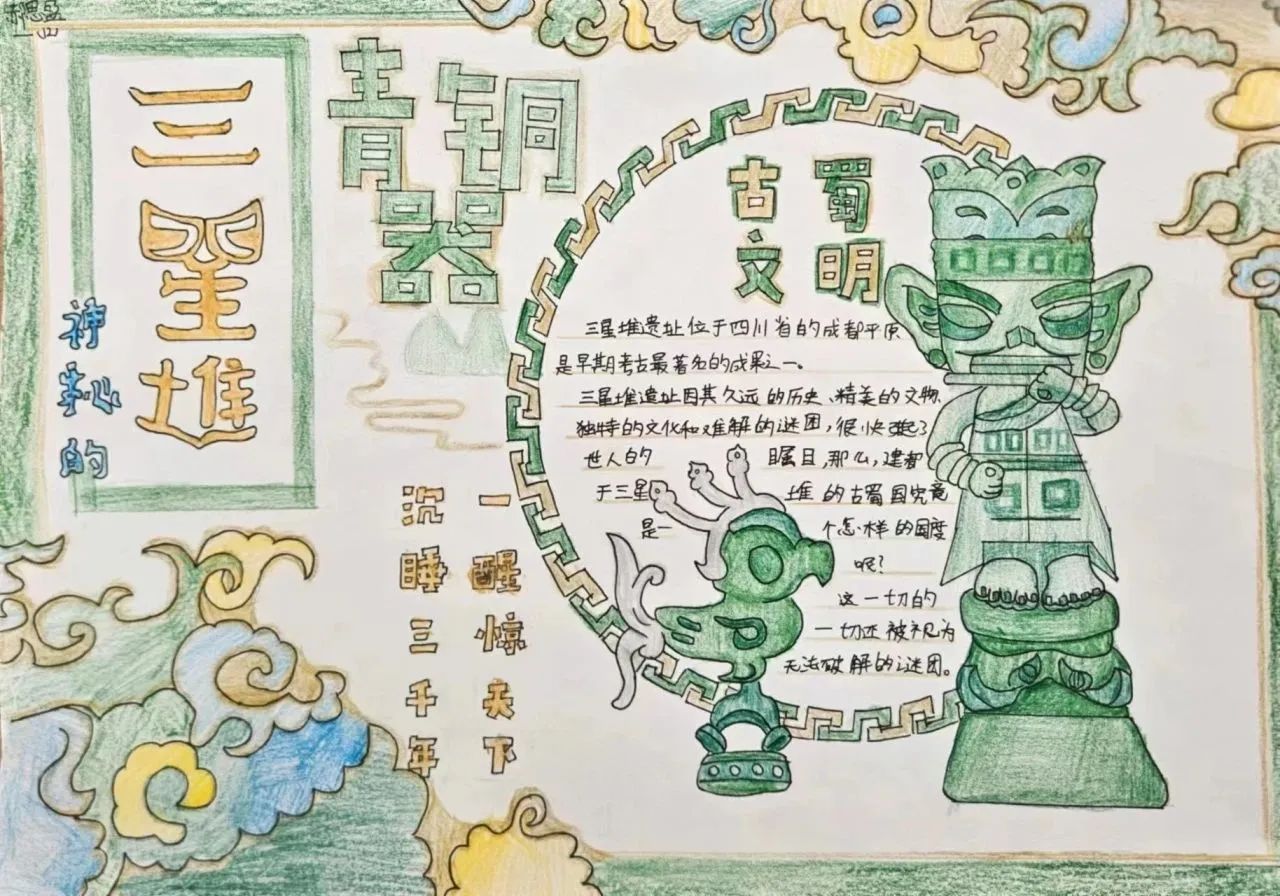 神秘的
三星堆
青铜
器
沉睡三千年
一醒惊天下
古蜀
文明
三星堆遗址位于四川省的成都平原
是早期考古最著名的成果之一。
三星堆遗址因其久远的历史、精美的文物、
独特的文化和难解的谜团,很快引起了
世人的瞩目,那么,建都
于三星堆的古蜀国究竟
是一个怎样的国度
呢?
这一切的
一切还被视为
无法破解的谜团。